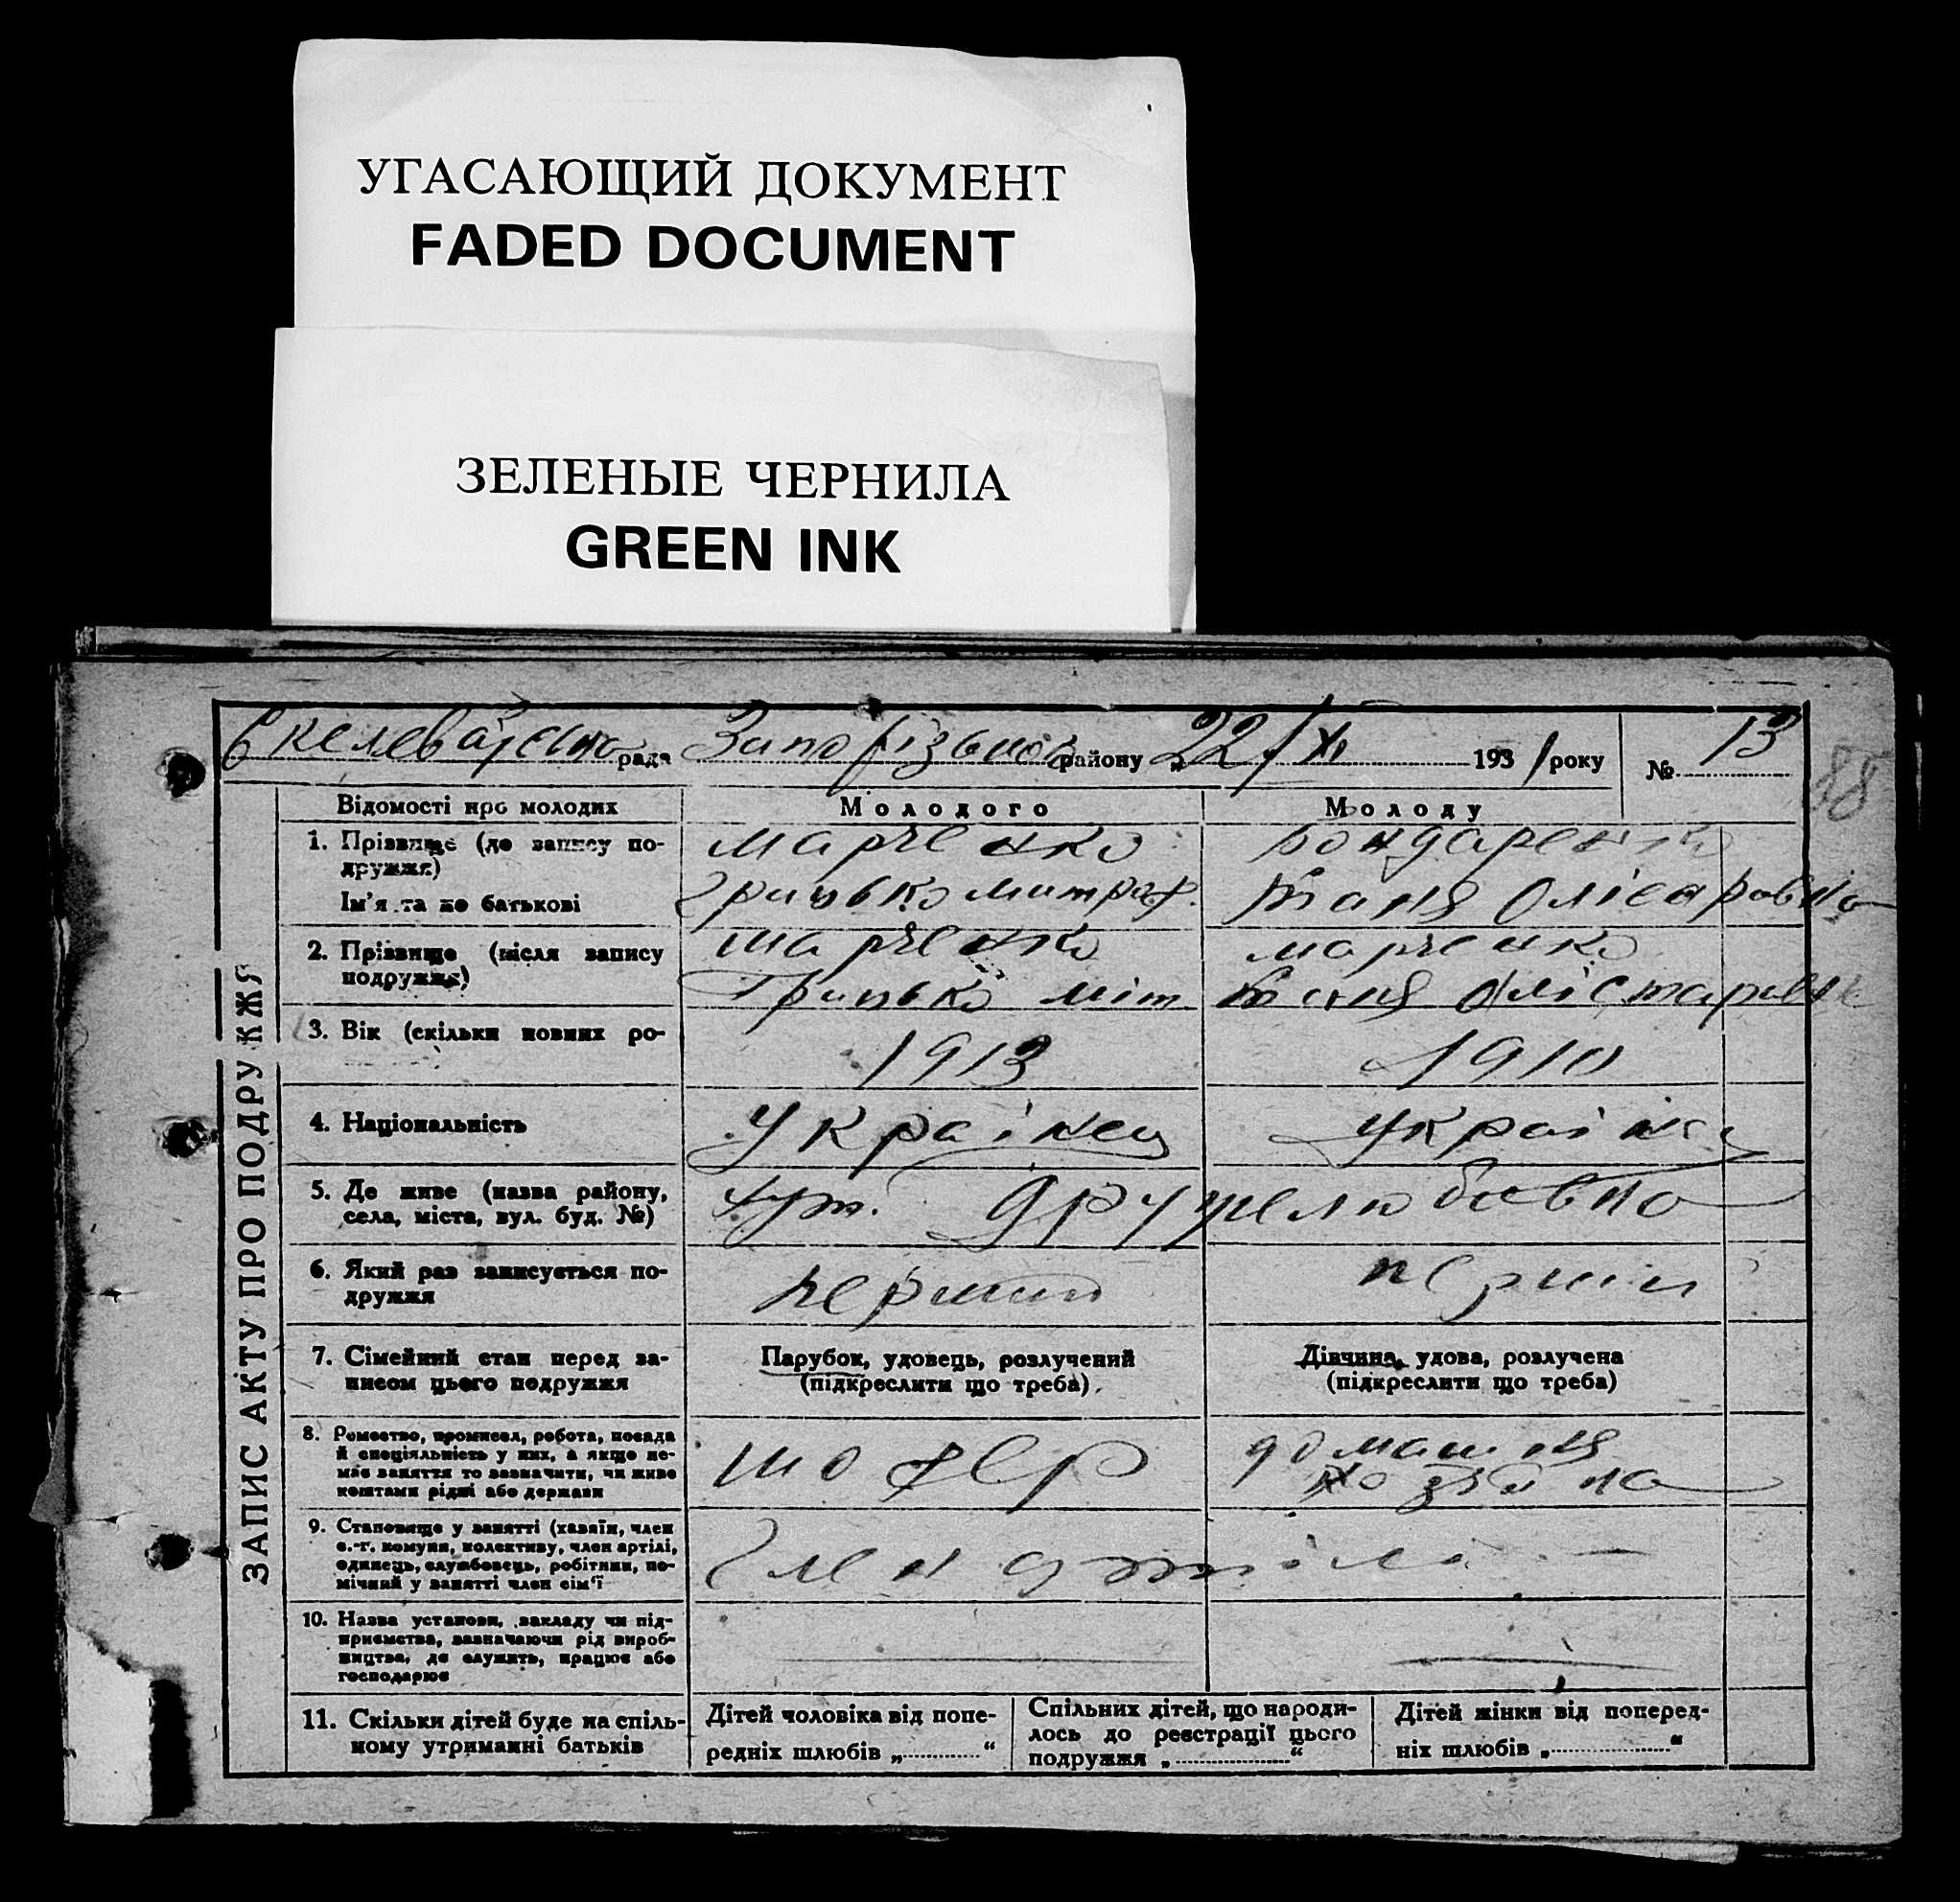 УГАСАЮЩИЙ ДОКУМЕНТ
FADED DOCUMENT
ЗЕЛЕНЫЕ ЧЕРНИЛА
GREEN INK
рада району 22/XI 1931 року № 13
88
ЗАПИС АКТУ ПРО ПОДРУЖЖЯ
Відомості про молодих Молодого Молоду
1. Прізвище (до запису по-
дружжя)
марченко бондаренко
Ім'я та по батькові
Грицько митроф. Таня
2. Прізвище (після запису
подружжя)
марченко марченко
Грицько міт Таня
3. Вік (скільки повних ро-
1913 1910
4. Національність
Українец Українка
5. Де живе (назва району,
села, міста, вул. буд. №)
хут. дружелюбовка
6. Який раз записується по-
дружжя
перший
7. Сімейний стан перед за-
писом цього подружжя
Парубок, удовець, розлучений
(підкреслити що треба)
Дівчина, удова, розлучена
(підкреслити що треба)
8. Ремество, промисел, робота, посада
й спеціяльність у них, а якщо не-
має заняття то зазначити, чи живе
коштами рідні або держави
шофер
домашня
хозяйка
9. Становище у занятті (хазяїн, член
с.-г. комуни, колективу, член артілі,
одинець, службовець, робітник, по-
мічний у занятті член сім'ї
член
10. Назва установи, закладу чи під-
приємства, зазначаючи рід вироб-
ництва, де служить, працює або
господарює
11. Скільки дітей буде на спіль-
ному утриманні батьків
Дітей чоловіка від попе-
редніх шлюбів „ “
Спільних дітей, що народи-
лось до реєстрації цього
подружжя „ “
Дітей жінки від поперед-
ніх шлюбів „ “